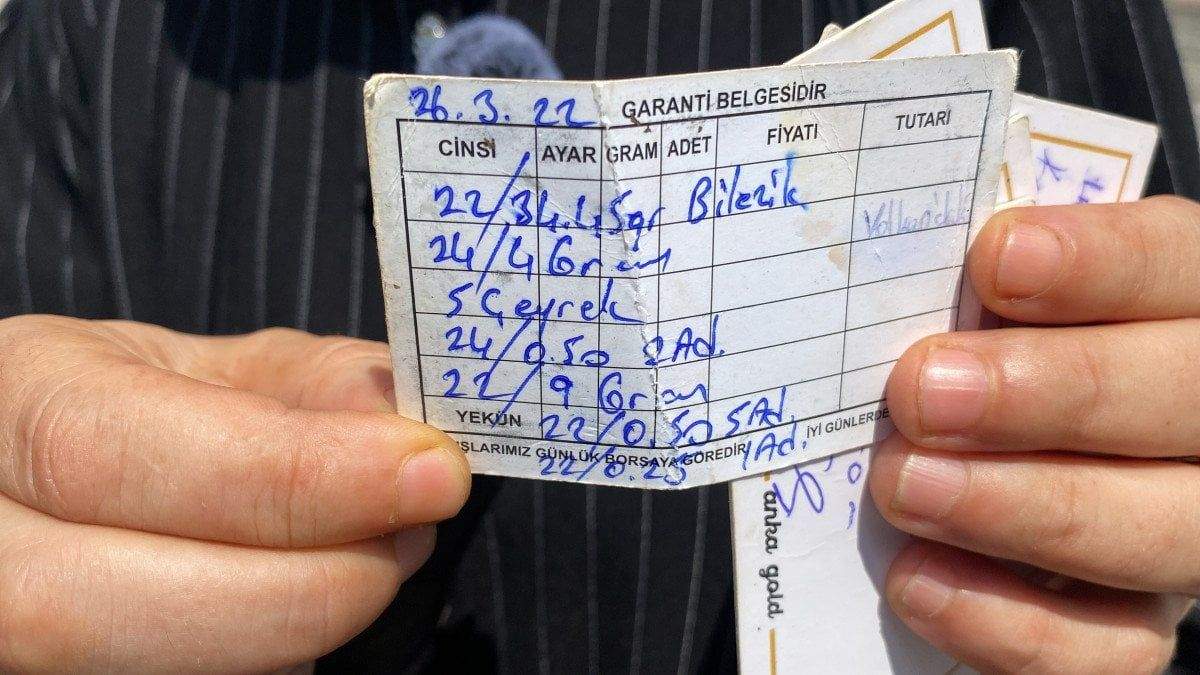 26.3.22 GARANTİ BELGESİDİR
CİNSİ AYAR GRAM ADET FİYATI TUTARI
22/34.45gr Bilezik
24/4 Gram
5 Çeyrek
24/0.50 2Ad.
22/9 Gram
YEKÜN 22/0.50 5Ad.
IŞLARIMIZ GÜNLÜK BORSAYA GÖREDİR İYİ GÜNLERDE
22/0.25 1Ad.
anka gold